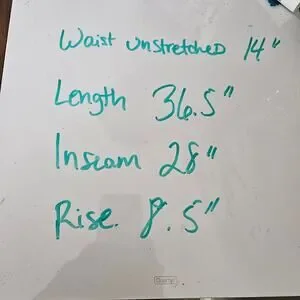 Waist unstretched 14"
Length 36.5"
Inseam 28"
Rise. 8.5"